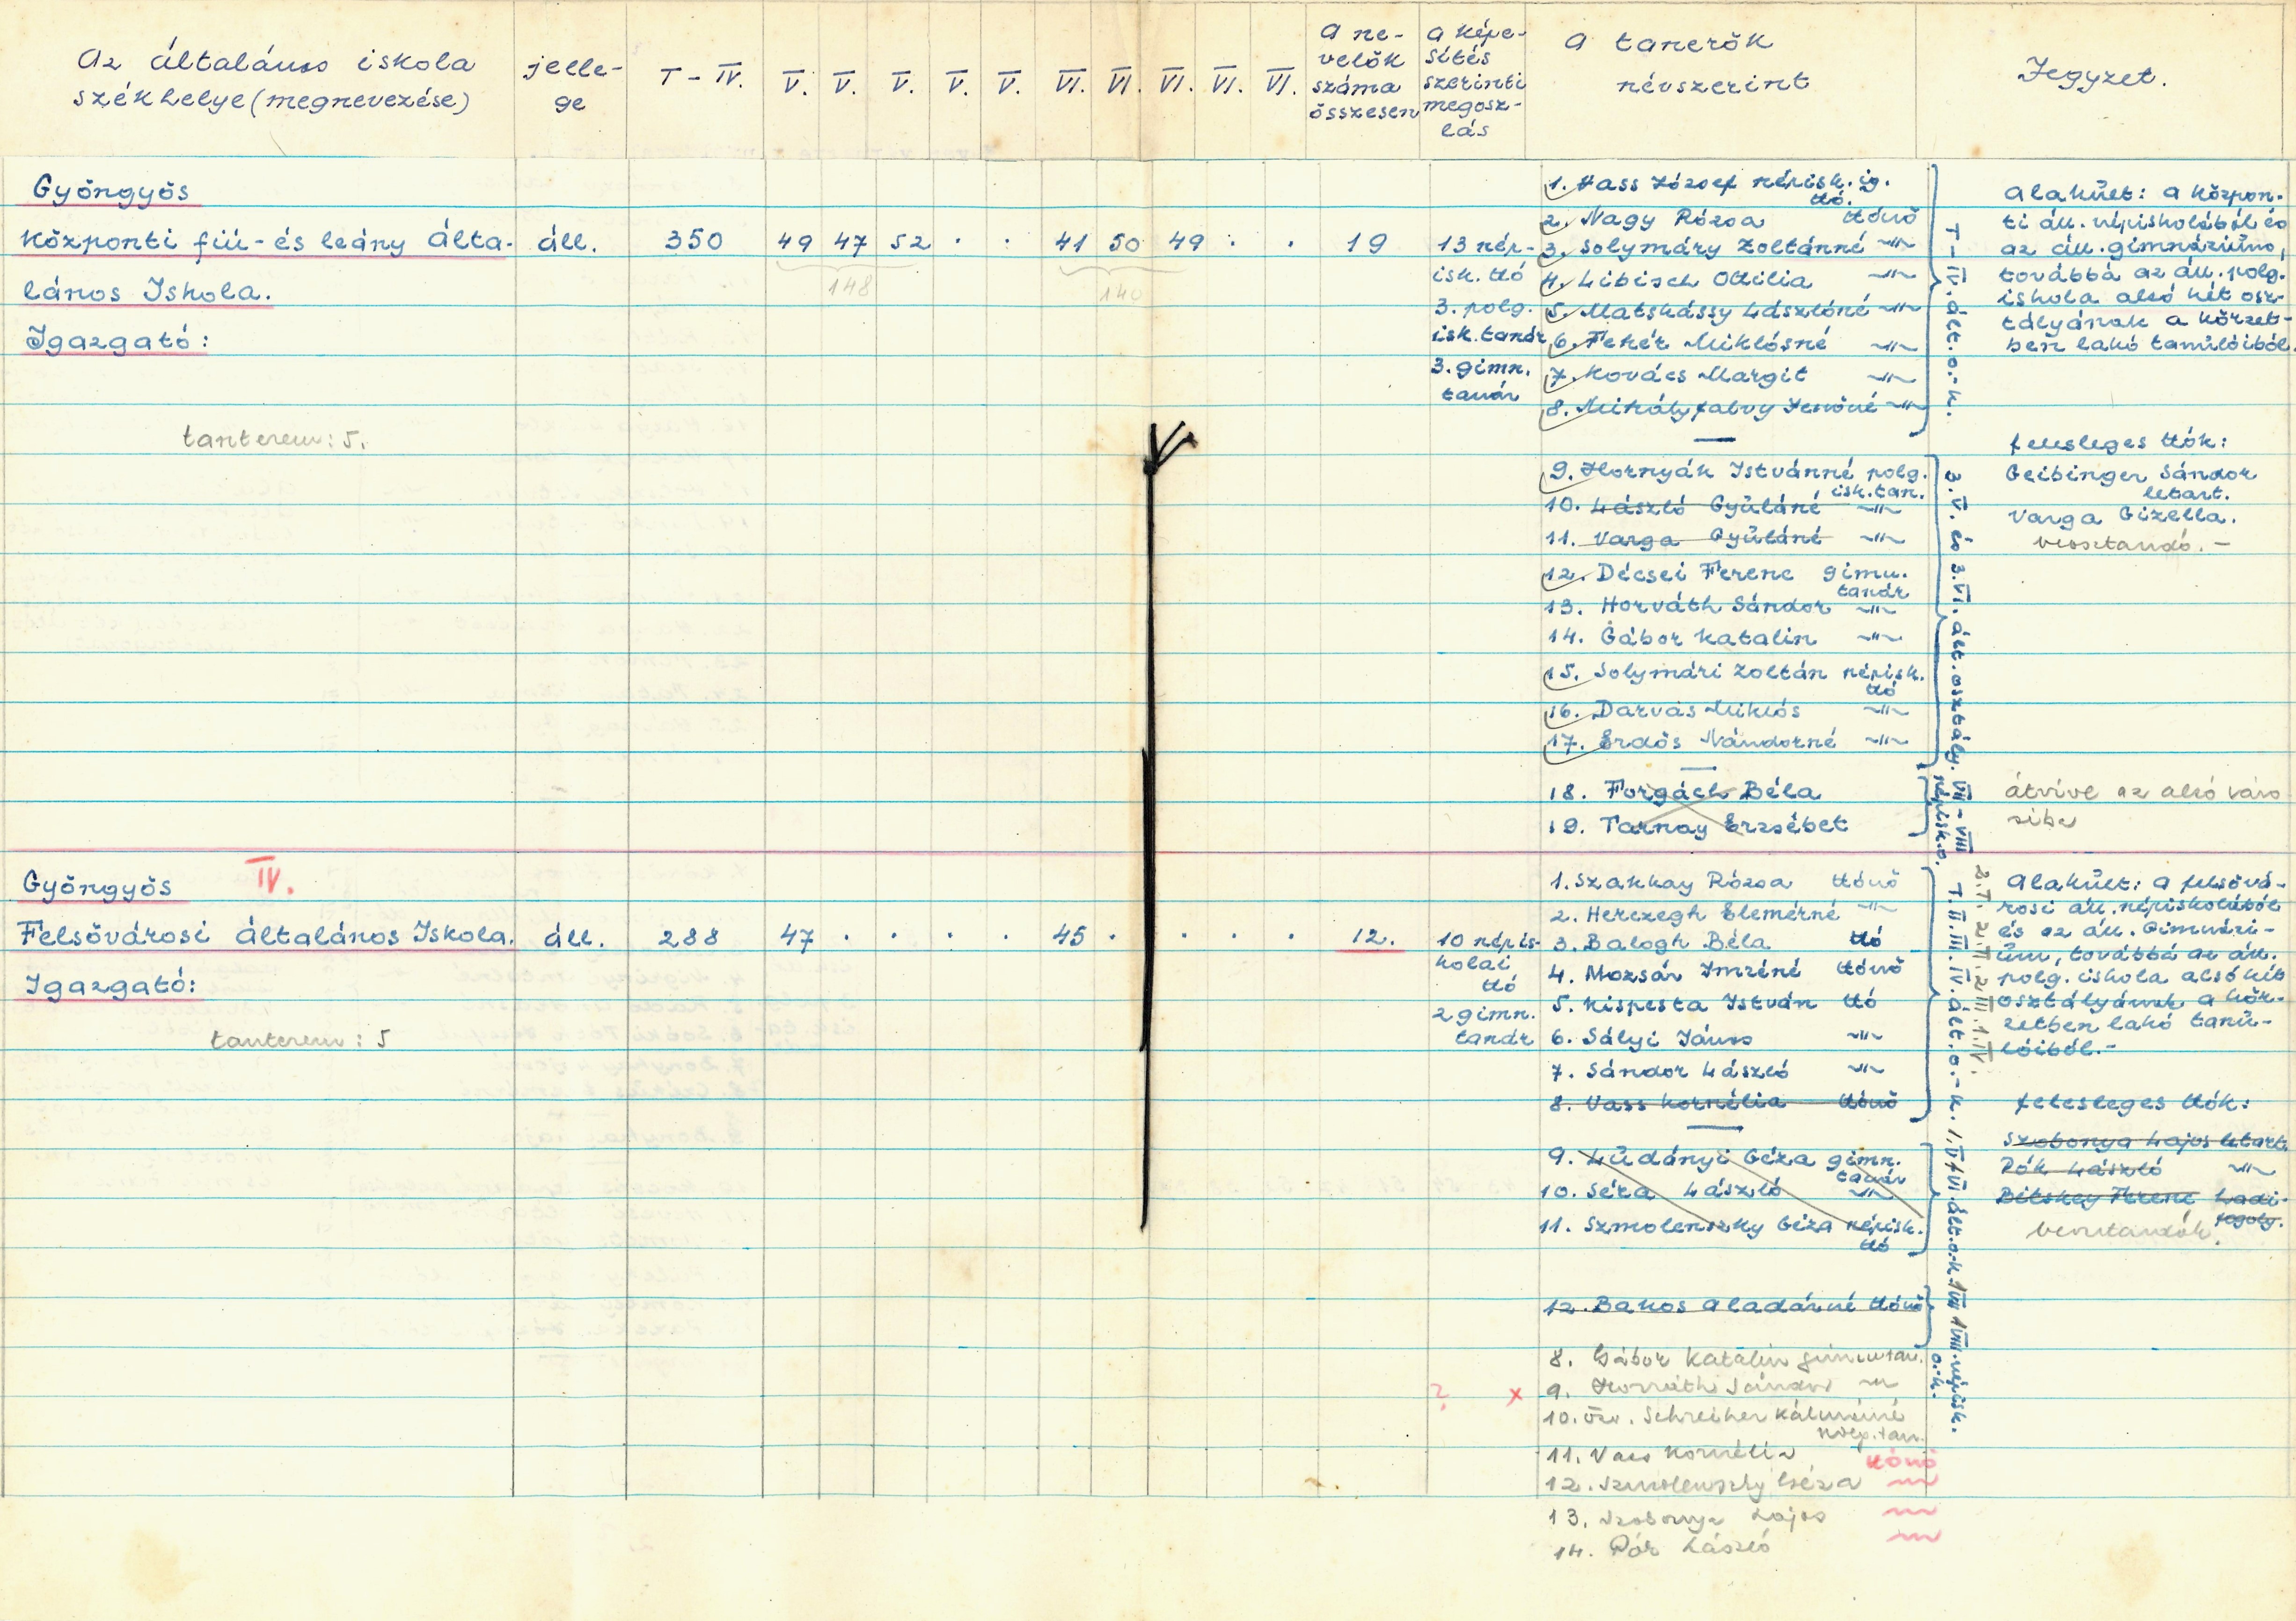 Az általános iskola
székhelye (megnevezése)
jelle-
ge
I - IV.
V. V. V. V. V. VI. VI. VI. VI. VI.
A ne-
velők
száma
összesen
A képe-
sítés
szerinti
megosz-
lás
A tanerők
névszerint
Jegyzet.
Gyöngyös
Központi fiú- és leány álta-
lános Iskola.
Igazgató:
tanterem: 5.
áll.
350
49 47 52 . . 41 50 49 . .
148
140
19
13 nép-
isk. ttó
3. polg.
isk. tanár
3. gimn.
tanár
1. Hass József népisk. ig.
ttó.
2. Nagy Rózsa ttónő
3. Solymáry Zoltánné -"-
4. Libisch Ottilia -"-
5. Matskássy Lászlóné -"-
6. Fehér Miklósné -"-
7. Kovács Margit -"-
8. Mihályfalvy Jenőné -"-
I - IV. ált. o.-k.
9. Hornyák Istvánné polg.
isk. tan.
10. László Gyuláné -"-
11. Varga Gyuláné -"-
12. Décsei Ferenc gimn.
tanár
13. Horváth Sándor -"-
14. Gábor Katalin -"-
15. Solymári Zoltán népisk.
ttó
16. Darvas Miklós -"-
17. Erdős Nándorné -"-
3. V. és 3. VI. ált. osztály.
18. Forgách Béla
19. Tarnay Erzsébet
VII - VIII
népisk. o.
Alakult: a közpon-
ti áll. népiskolából és
az áll. gimnázium,
továbbá az áll. polg.
iskola alsó két osz-
tályának a körzet-
ben lakó tanulóiból.
felesleges ttók:
Geibinger Sándor
letart.
Varga Gizella.
átvive az alsó váro
siba
Gyöngyös
IV.
Felsővárosi általános Iskola.
Igazgató:
tanterem: 5
áll.
288
47 . . . . 45 . . . .
12.
10 népis-
kolai
ttó
2 gimn.
tanár
1. Szakkay Rózsa ttónő
2. Herczegh Elemérné -"-
3. Balogh Béla ttó
4. Mozsár Imréné ttónő
5. Kispesta István ttó
6. Sályi János -"-
7. Sándor László -"-
8. Vass Kornélia ttónő
I. II. III. IV. ált. o.-k.
2. I. 2. II. 2 III. 1. IV.
9. Ludányi Géza gimn.
tanár
10. Séra László -"-
11. Szmolenszky Géza népisk.
ttó
1. V + VI. ált. o.-k.
12. Bakos Aladárné ttónő
1 VII 1 VIII. népisk.
o.-k.
8. Gábor Katalin gimn. tan.
? x 9. Horváth Sándor -"-
10. özv. Schreiber Kálmánné
11. Vass Kornélia ttónő
12. Szmolenszky Géza -"-
13. Szobonya Lajos -"-
14. Pók László -"-
Alakult: a felsővá-
rosi áll. népiskolából
és az áll. Gimnázi-
um, továbbá az áll.
polg. iskola alsó két
osztályának a kör-
zetben lakó tanu-
lóiból.-
felesleges ttók:
Szobonya Lajos letart.
Pók László -"-
Bitskey Ferenc hadi-
fogoly.